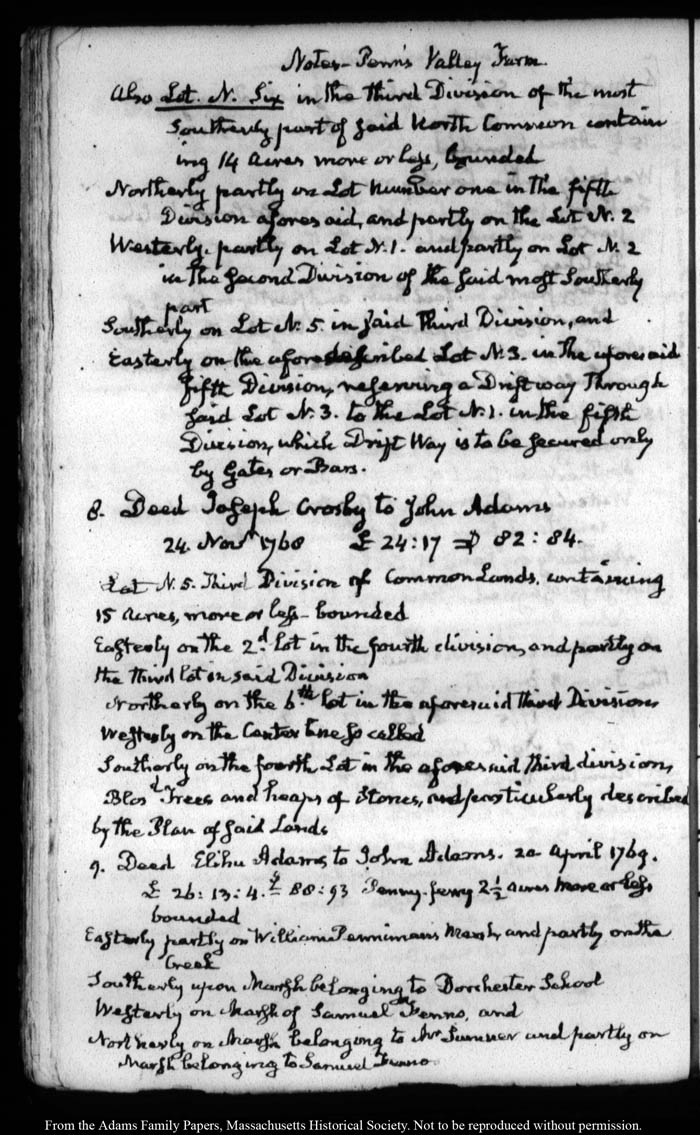 Notes – Penn's Valley Farm.
Also Lot. N. Six in the third Division of the most
Southerly part of said North Common contain
ing 14 Acres more or less, bounded
Northerly partly on Lot Number one in the fifth
Division aforesaid, and partly on the Lot N. 2
Westerly. partly on Lot N. 1. and partly on Lot N. 2
in the second Division of the said most Southerly
part
Southerly on Lot N. 5. in said Third Division, and
Easterly on the aforedescribed Lot N. 3. in the aforesaid
fifth Division, reserving a Driftway Through
said Lot N. 3. to the Lot N. 1. in the fifth
Division, which Drift Way is to be secured only
by Gates or Bars.
8. Deed Joseph Crosby to John Adams
24. Novr 1768 £ 24:17 = D 82: 84.
Lot N. 5. Third Division of Common Lands, containing
15 Acres, more or less – bounded
Easterly on the 2.d Lot in the fourth division, and partly on
the third lot in said Division
Northerly on the 6.th Lot in the aforesaid third Division
Westerly on the Center line so called
Southerly on the fourth Lot in the aforesaid third division,
Trees and heaps of stones, and particularly described
by the Plan of said Lands
9. Deed Elihu Adams to John Adams. 20 April 1769.
£ 26: 13: 4. = 88: 93 Penny-ferry 2 1/2 acres more or less
bounded
Easterly partly on William Pennimans Marsh, and partly on the
Creek
Southerly upon Marsh belonging to Dorchester School
Westerly on Marsh of Samuel Fenno, and
Northerly on Marsh belonging to Mr Sumner and partly on
Marsh belonging to Samuel Fenno
From the Adams Family Papers, Massachusetts Historical Society. Not to be reproduced without permission.